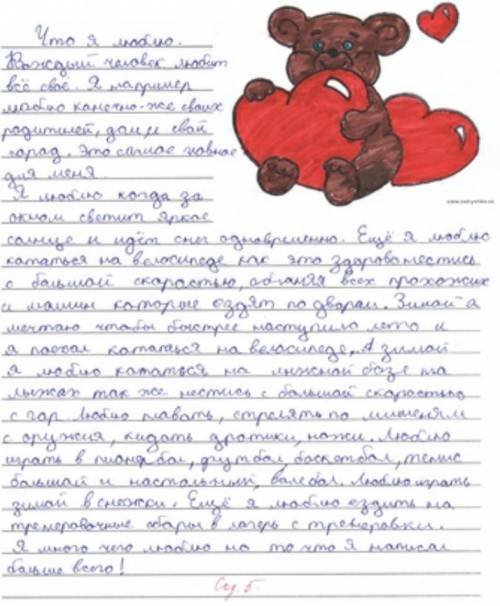 Что я люблю.
Каждый человек любит
всё своё. Я например
люблю конечно-же своих
родителей, дом, и свой
город. Это самое главное
для меня.
Я люблю когда за
окном светит яркое
солнце и идёт снег одновременно. Ещё я люблю
кататься на велосипеде как это здорово нестись
с большой скоростью, обганяя всех прохожих
и машин которые ездят по дворам. Зимой я
мечтаю чтобы быстрее наступило лето и
я поехал кататься на велосипеде. А зимой
я люблю кататься на лыжной базе на
лыжах так же нестись с большой скоростью
с гор. Люблю плавать, стрелять по мишеням
с оружия, кидать дротики, ножи. Люблю
играть в футбол, баскетбол, тенис
большой и настольный, валебол. Люблю играть
зимой в снежки. Ещё я люблю ездить на
тренеровочные сборы в лагерь с тренеровки.
Я много чего люблю но то что я написал
больше всего!